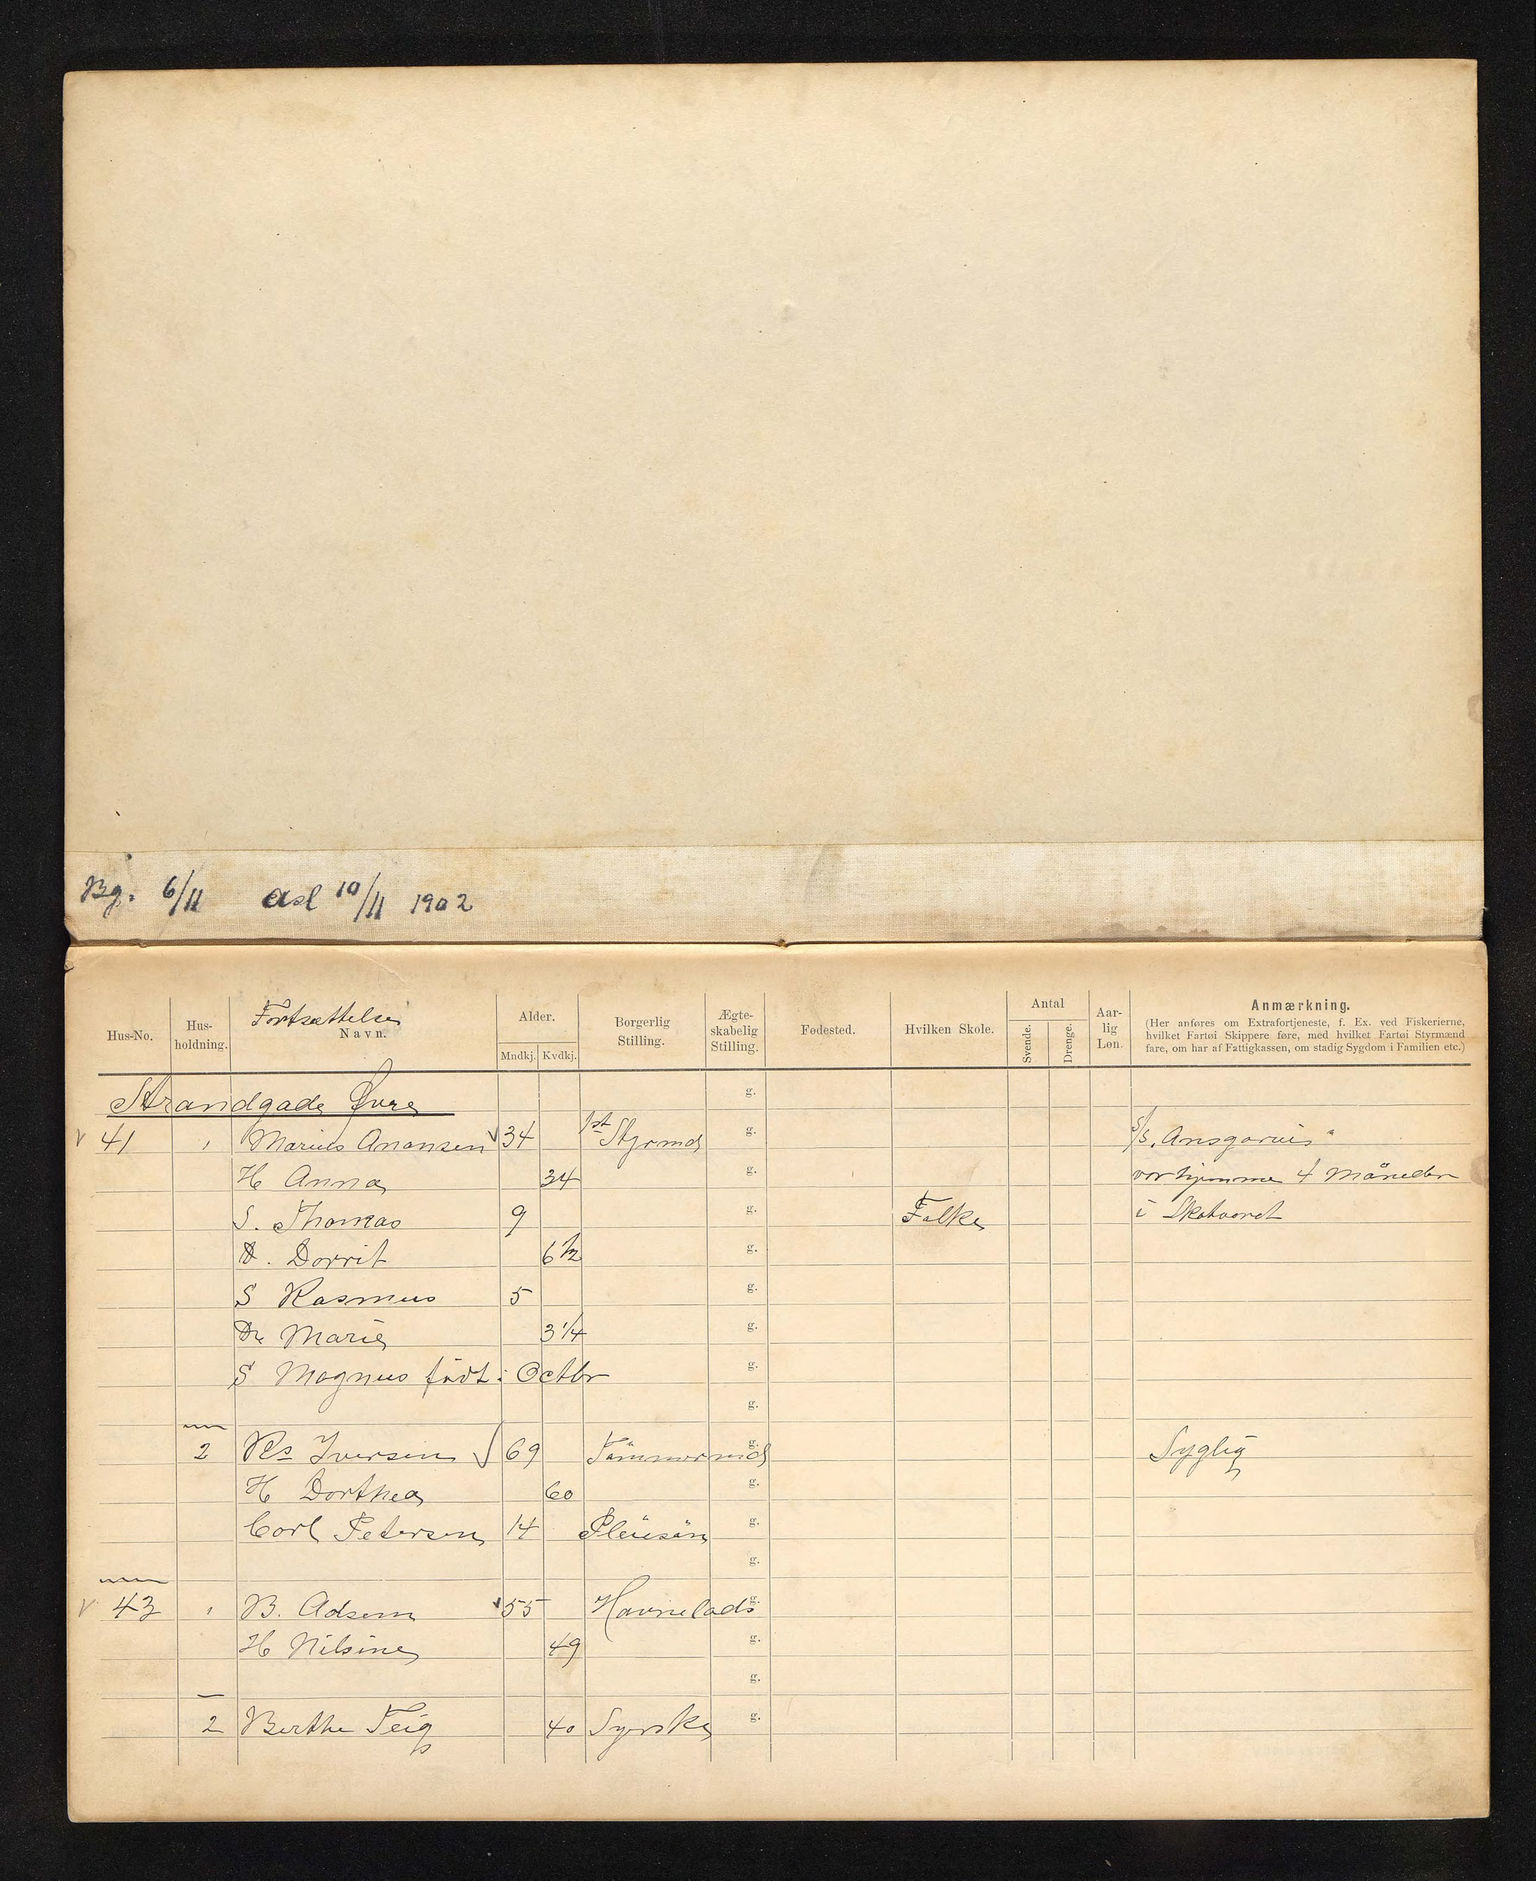 Bg. 6/11 asl 10/11 1902
Fortsættelse
Hus-No. Hus-holdning. Navn. Alder. Mndkj. Kvdkj. Borgerlig Stilling. Ægte-skabelig Stilling. Fødested. Hvilken Skole. Antal Svende. Drenge. Aar-lig Løn. Anmærkning.
(Her anføres om Extrafortjeneste, f. Ex. ved Fiskerierne,
hvilket Fartøi Skippere føre, med hvilket Fartøi Styrmænd
fare, om har af Fattigkassen, om stadig Sygdom i Familien etc.)
Strandgade Øvre g.
41 1 Marius Anansen 34 1st Styrmd g. S/S. "Ansgarius"
H Anna 34 g. var hjemme 4 Måneder
S. Thomas 9 g. Folke i
D. Dorrit 6 1/2 g.
S Rasmus 5 g.
Dr Marie 3 1/4 g.
S Magnus født i Octbr g.
g.
2 Rs Iversen 69 Tömmermd g. Syglig
H Dorthea 60 g.
Carl Petersen 14 Pleiesön g.
g.
43 1 B. Adsem 55 Havnelods g.
H Nilsine 49 g.
g.
2 Berthe Teig 40 Syerske g.